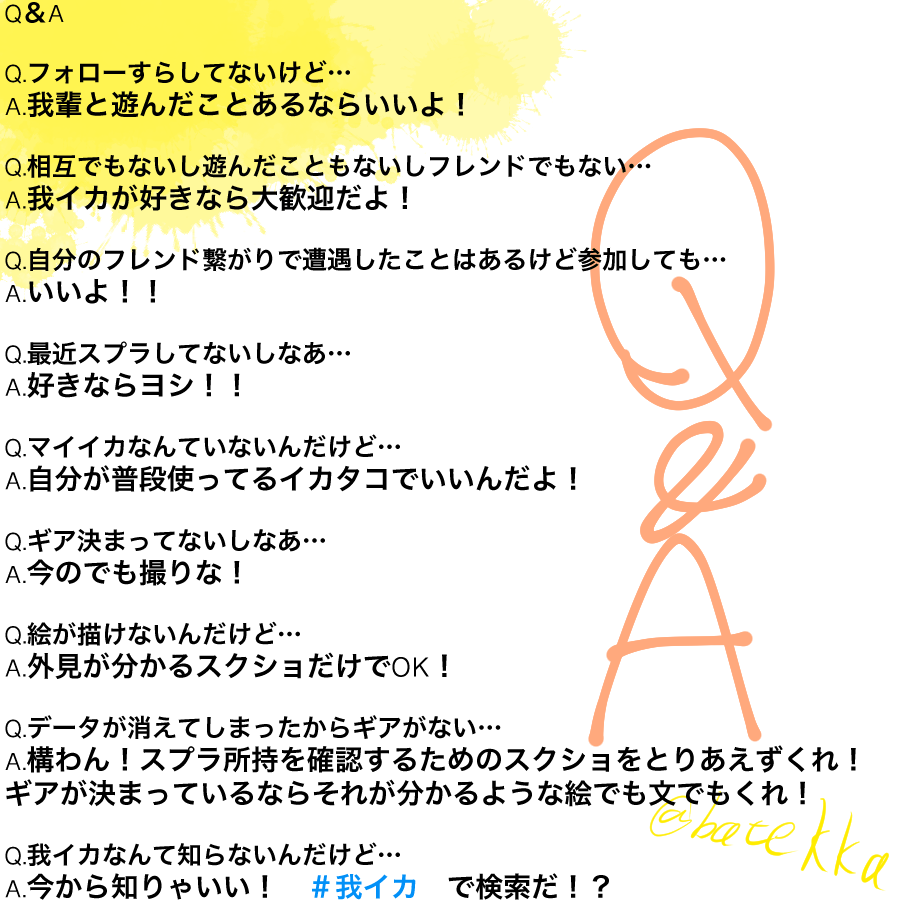 Q&A
Q.フォローすらしてないけど…
A.我輩と遊んだことあるならいいよ！
Q.相互でもないし遊んだこともないしフレンドでもない…
A.我イカが好きなら大歓迎だよ！
Q.自分のフレンド繋がりで遭遇したことはあるけど参加しても…
A.いいよ！！
Q.最近スプラしてないしなあ…
A.好きならヨシ！！
Q.マイイカなんていないんだけど…
A.自分が普段使ってるイカタコでいいんだよ！
Q.ギア決まってないしなあ…
A.今のでも撮りな！
Q.絵が描けないんだけど…
A.外見が分かるスクショだけでOK！
Q.データが消えてしまったからギアがない…
A.構わん！スプラ所持を確認するためのスクショをとりあえずくれ！
ギアが決まっているならそれが分かるような絵でも文でもくれ！
Q.我イカなんて知らないんだけど…
A.今から知りゃいい！　＃我イカ　で検索だ！？
Q
&
A
@batekka